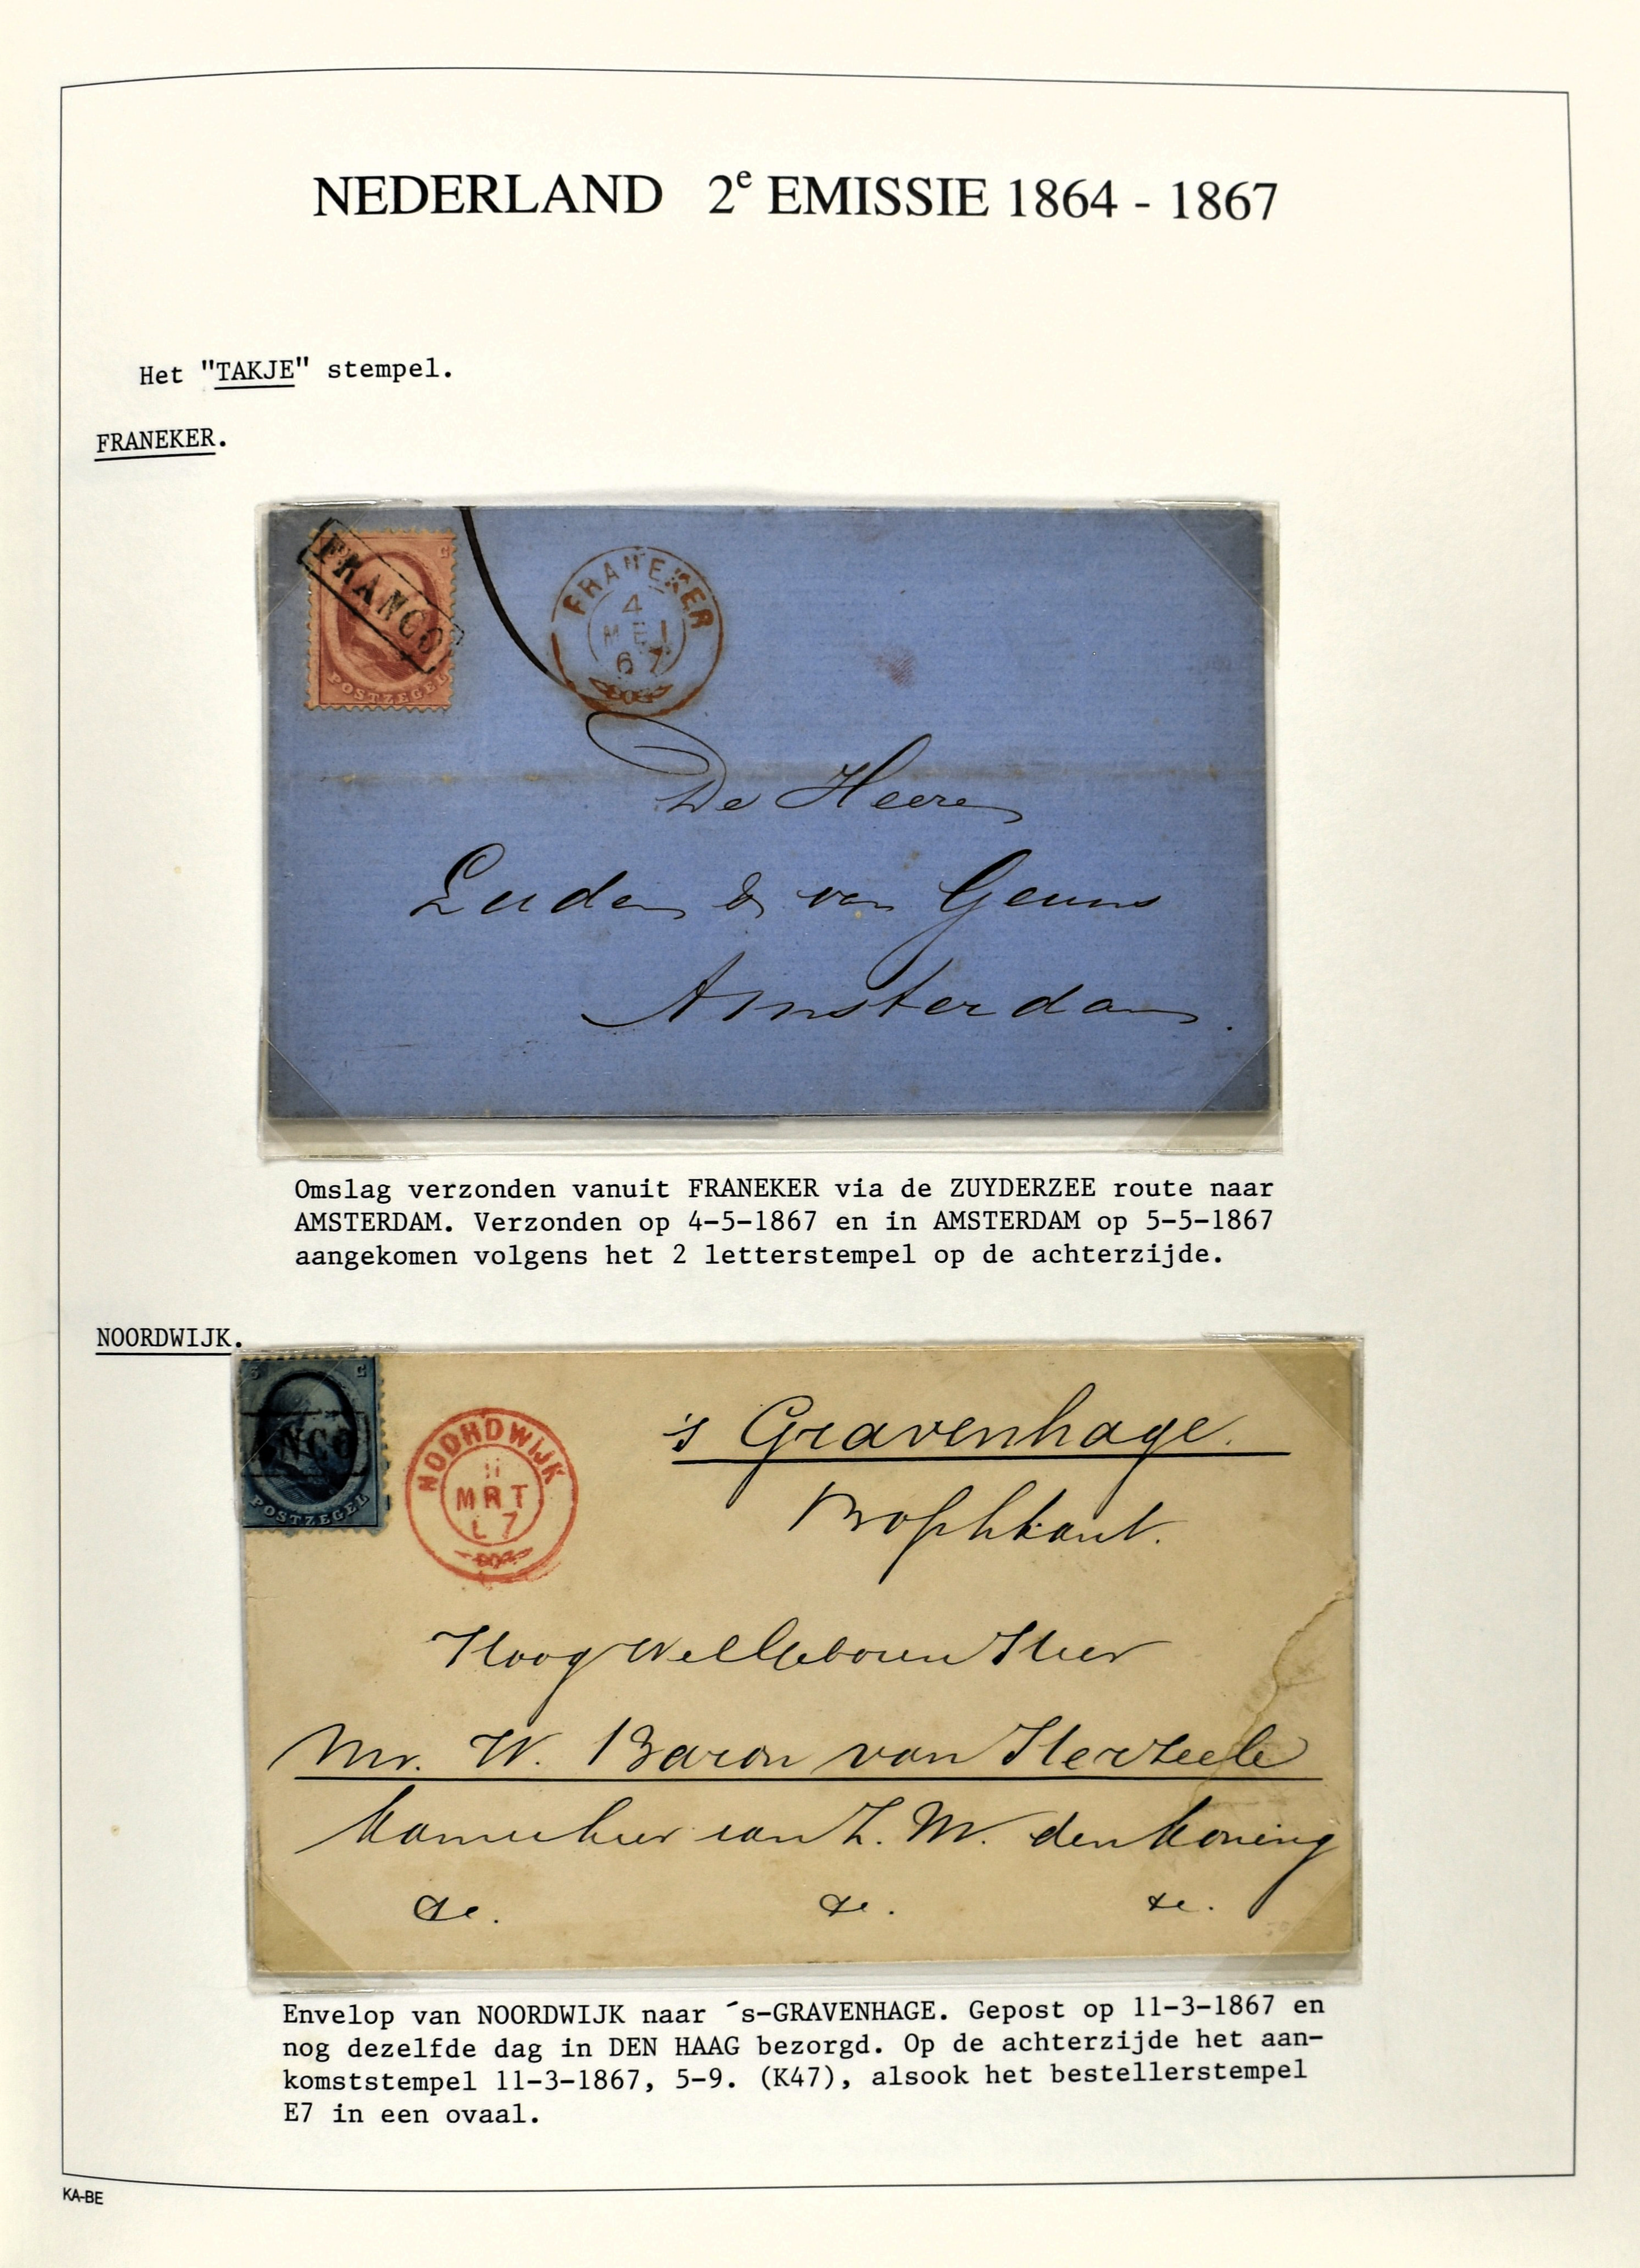 NEDERLAND 2e EMISSIE 1864 - 1867
Het "TAKJE" stempel.
FRANEKER.
FRANCO
C
POSTZEGEL
FRANEKER
4
MEI
67
De Heeren
Luden & van Geuns
Amsterdam.
Omslag verzonden vanuit FRANEKER via de ZUYDERZEE route naar
AMSTERDAM. Verzonden op 4-5-1867 en in AMSTERDAM op 5-5-1867
aangekomen volgens het 2 letterstempel op de achterzijde.
NOORDWIJK.
5 C
NCO
POSTZEGEL
NOORDWIJK
11
MRT
67
's Gravenhage.
HoogWelGeboren Heer
Mr. W. Baron van Herzeele
Kamerheer van Z. M. den Koning
&e. &e. &e.
Envelop van NOORDWIJK naar ´s-GRAVENHAGE. Gepost op 11-3-1867 en
nog dezelfde dag in DEN HAAG bezorgd. Op de achterzijde het aan-
komststempel 11-3-1867, 5-9. (K47), alsook het bestellerstempel
E7 in een ovaal.
KA-BE